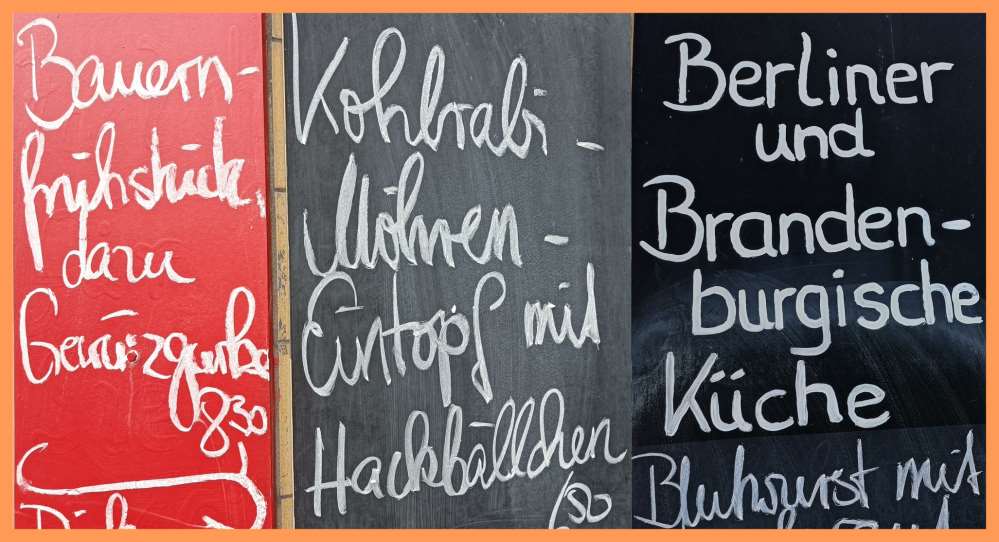 Bauern-
frühstück,
dazu
Gewürzgurke
830
Kohlrabi -
Möhren -
Eintopf mit
Hackbällchen
Berliner
und
Branden-
burgische
Küche
Blutwurst mit